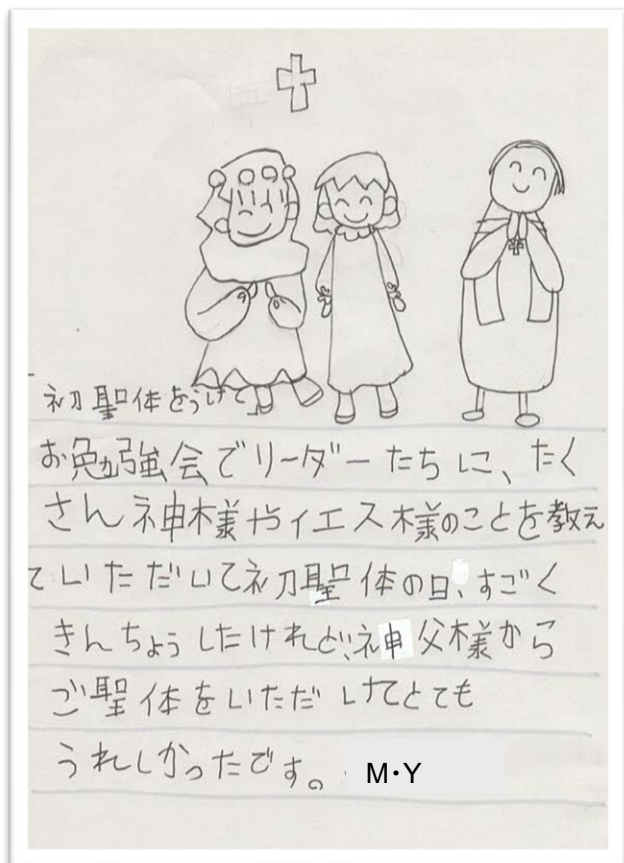 初聖体をうけて
お勉強会でリーダーたちに、たく
さん神様やイエス様のことを教え
ていただいて初聖体の日、すごく
きんちょうしたけれど、神父様から
ご聖体をいただけてとても
うれしかったです。 M・Y